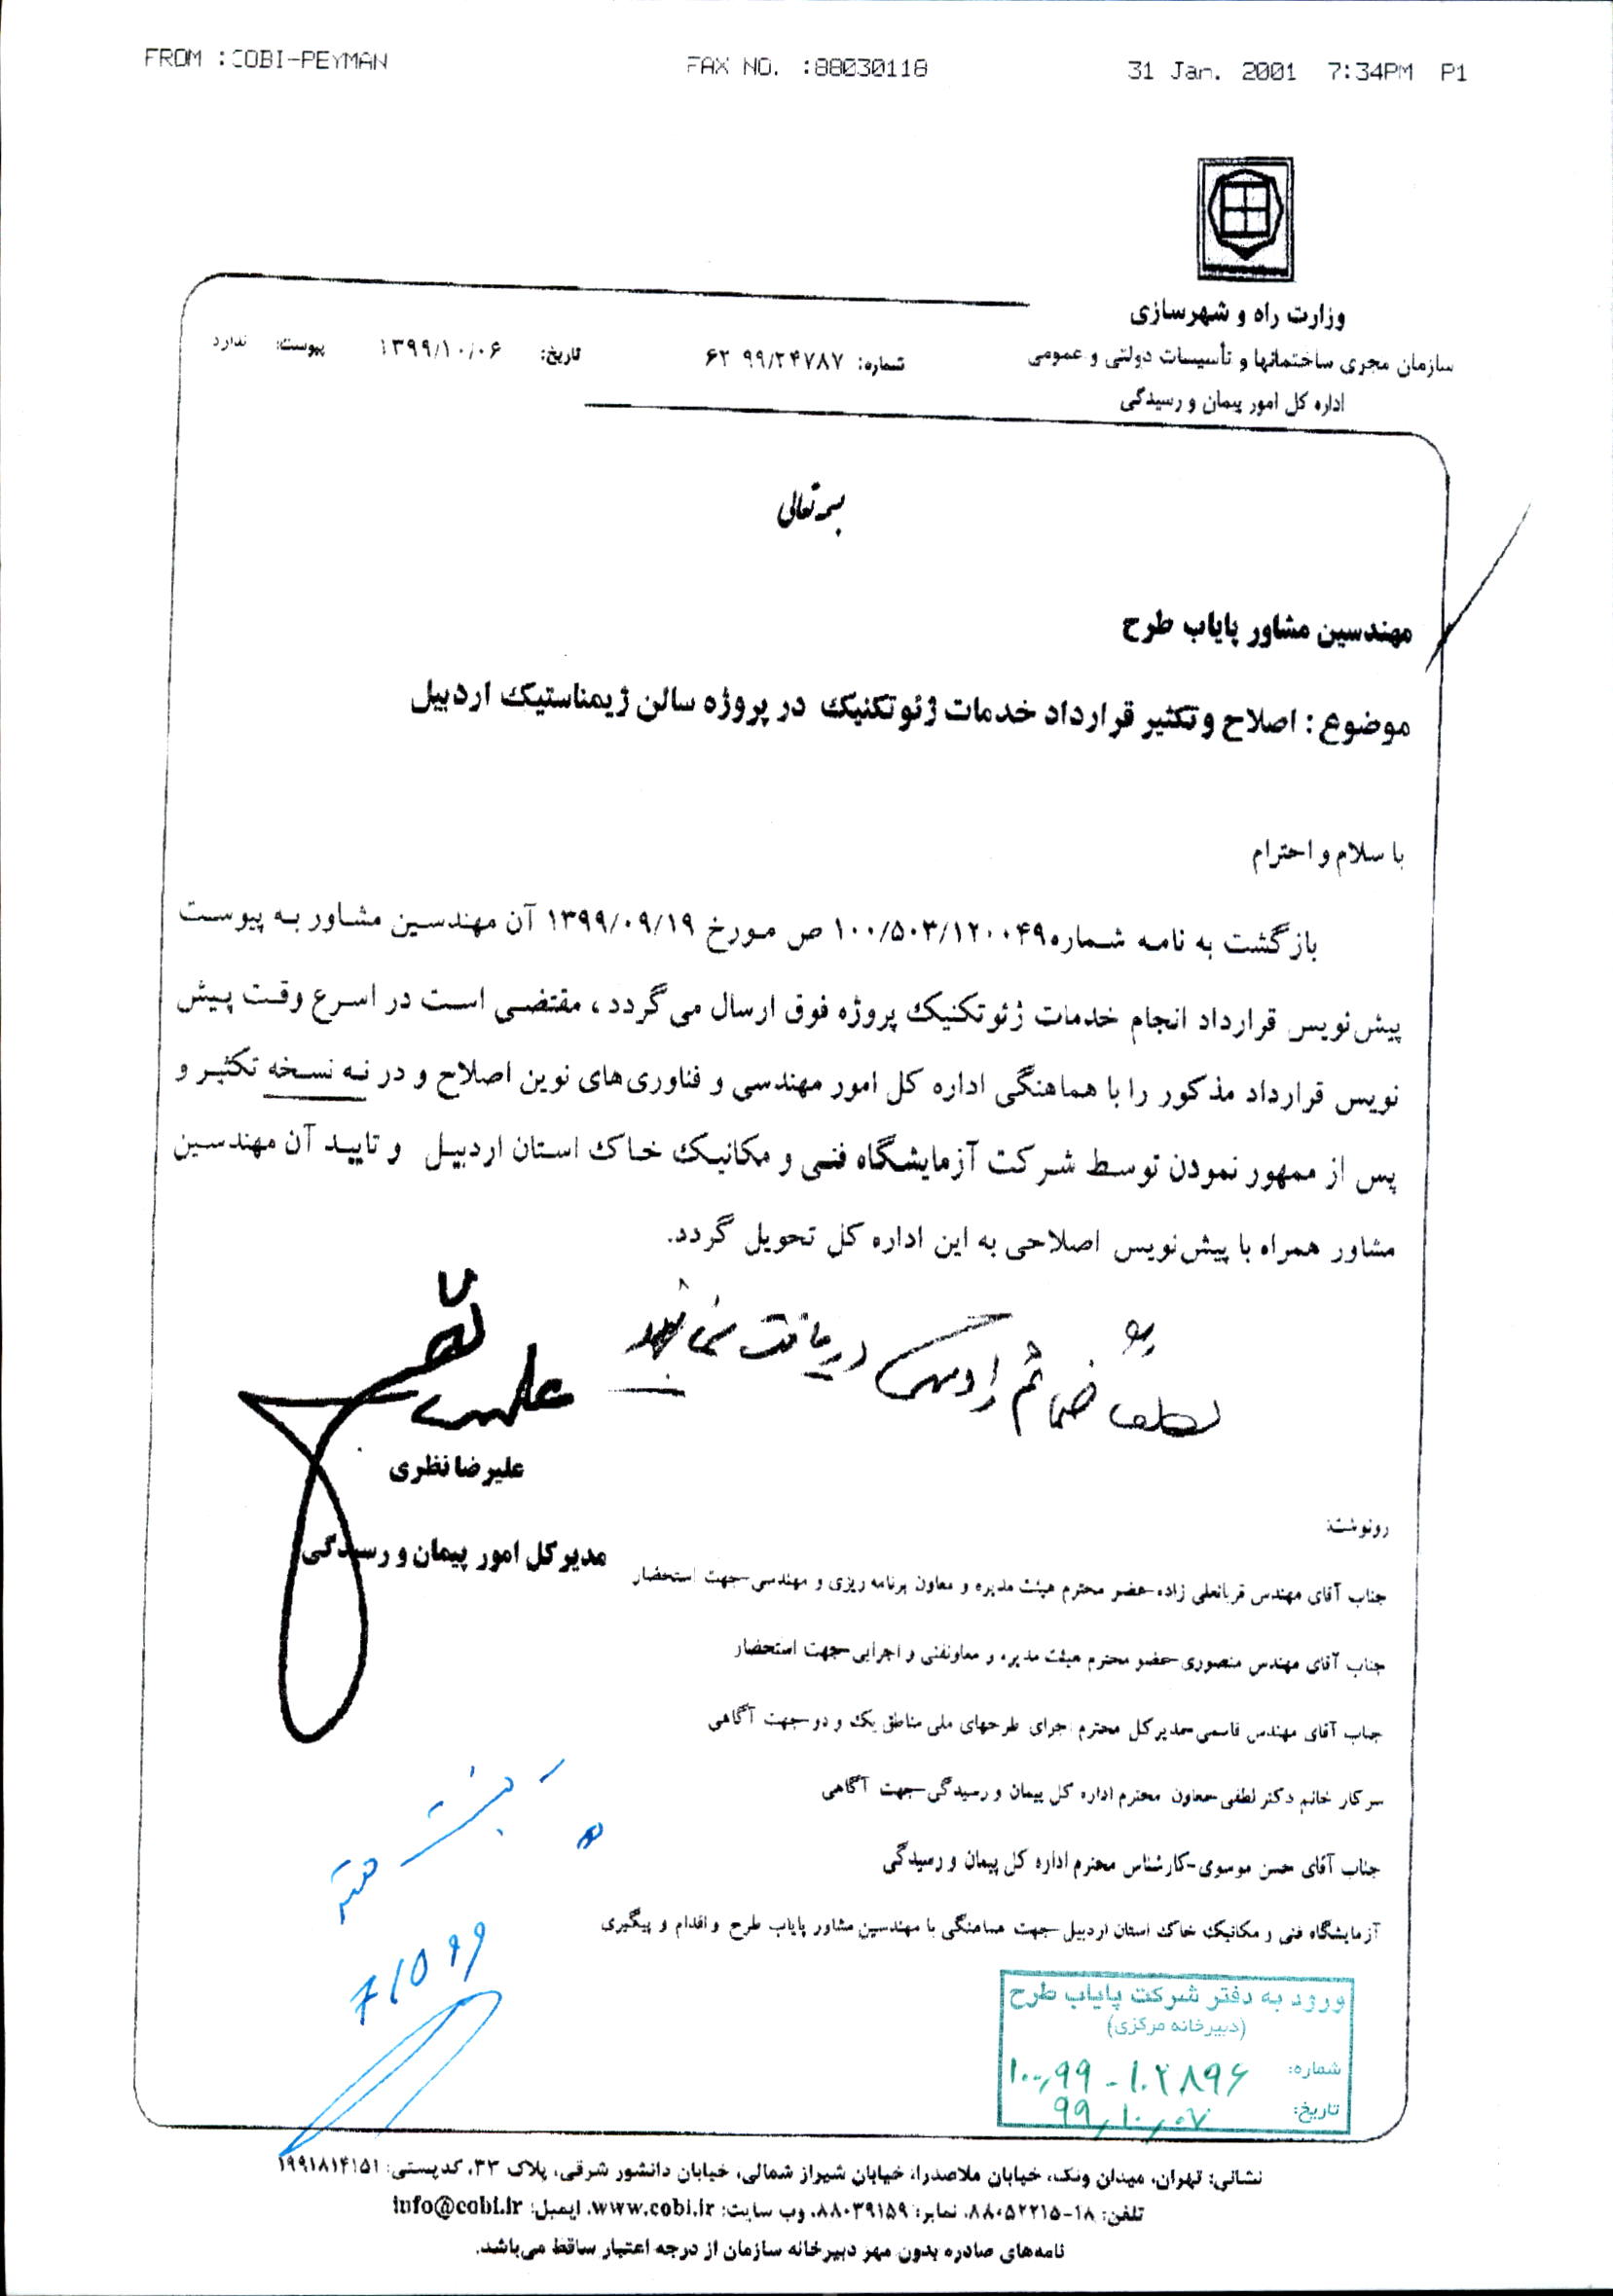 FROM :COBI-PEYMAN FAX NO. :88030118 31 Jan. 2001 7:34PM P1
وزارت راه و شهرسازی
سازمان مجری ساختمانها و تأسیسات دولتی و عمومی
اداره کل امور پیمان و رسیدگی
شماره: ۶۲ ۹۹/۲۴۷۸۷ تاریخ: ۱۳۹۹/۱۰/۰۶ پیوست: ندارد
بسمه تعالی
مهندسین مشاور پایاب طرح
موضوع : اصلاح و تکثیر قرارداد خدمات ژئوتکنیک در پروژه سالن ژیمناستیک اردبیل
با سلام و احترام
بازگشت به نامه شماره ۱۰۰/۵۰۳/۱۲۰۰۴۹ ص مورخ ۱۳۹۹/۰۹/۱۹ آن مهندسین مشاور به پیوست
پیش‌نویس قرارداد انجام خدمات ژئوتکنیک پروژه فوق ارسال می‌گردد ، مقتضی است در اسرع وقت پیش
نویس قرارداد مذکور را با هماهنگی اداره کل امور مهندسی و فناوری‌های نوین اصلاح و در نه نسخه تکثیر و
پس از ممهور نمودن توسط شرکت آزمایشگاه فنی و مکانیک خاک استان اردبیل و تایید آن مهندسین
مشاور همراه با پیش‌نویس اصلاحی به این اداره کل تحویل گردد.
لطفاً ضمائم را دریافت نمائید
علیرضا نظری
مدیر کل امور پیمان و رسیدگی
رونوشت:
جناب آقای مهندس قربانعلی زاده-عضو محترم هیئت مدیره و معاون برنامه ریزی و مهندسی-جهت استحضار
جناب آقای مهندس منصوری-عضو محترم هیئت مدیره و معاونفنی و اجرایی-جهت استحضار
جناب آقای مهندس قاسمی-مدیرکل محترم اجرای طرحهای ملی مناطق یک و دو-جهت آگاهی
سرکار خانم دکتر لطفی-معاون محترم اداره کل پیمان و رسیدگی-جهت آگاهی
جناب آقای حسن موسوی-کارشناس محترم اداره کل پیمان و رسیدگی
آزمایشگاه فنی و مکانیک خاک استان اردبیل-جهت هماهنگی با مهندسین مشاور پایاب طرح و اقدام و پیگیری
ورود به دفتر شرکت پایاب طرح
(دبیرخانه مرکزی)
شماره: ۱۰۰,۹۹ - ۱۰۲۸۹۶
تاریخ: ۹۹,۱۰,۰۷
نشانی: تهران، میدان ونک، خیابان ملاصدرا، خیابان شیراز شمالی، خیابان دانشور شرقی، پلاک ۳۳، کدپستی: ۱۹۹۱۸۱۴۱۵۱
تلفن: ۱۸-۸۸۰۵۲۲۱۵، نمابر: ۸۸۰۳۹۱۵۹، وب سایت: www.cobi.ir، ایمیل: info@cobi.ir
نامه‌های صادره بدون مهر دبیرخانه سازمان از درجه اعتبار ساقط می‌باشد.